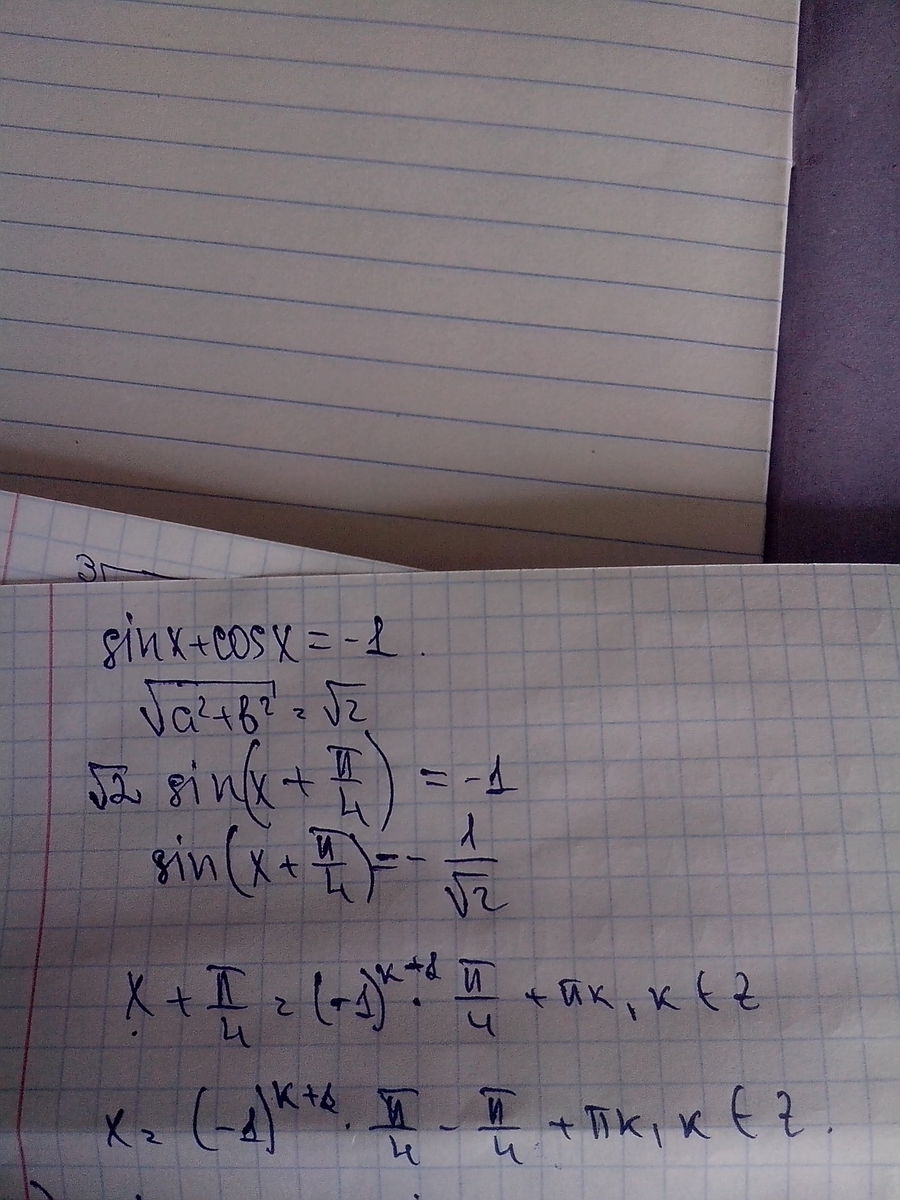 3
sinx+cosx=-1.
√(a²+b²) = √2
√2 sin(x + π/4) = -1
sin(x + π/4) = - 1/√2
x + π/4 = (-1)^(k+1) · π/4 + πk, k ∈ Z
x = (-1)^(k+1) · π/4 - π/4 + πk, k ∈ Z.